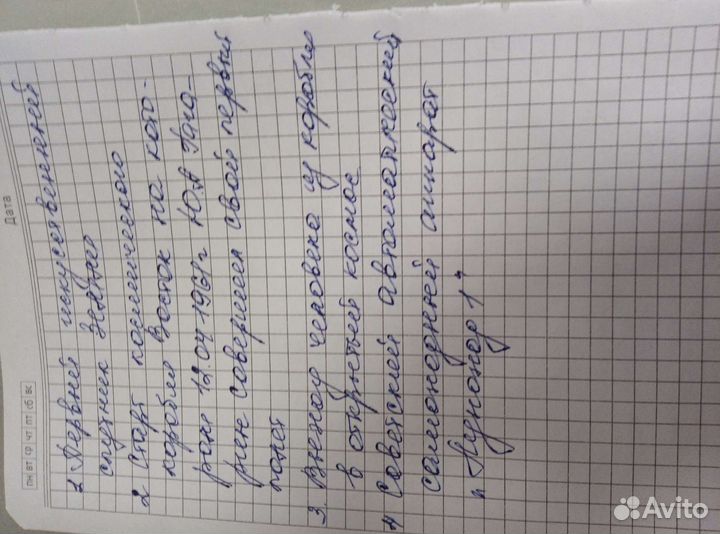 Дата
пн вт ср чт пт сб вс
1 Первый искусственный
спутник Земли
2 Старт космического
корабля Восток на кото-
ром 12.04.1961г Ю.А Гага-
рин совершил свой первый
полет
3. Выход человека из корабля
в открытый космос
4 Советский автоматический
самоходный аппарат
"Луноход 1"
Avito